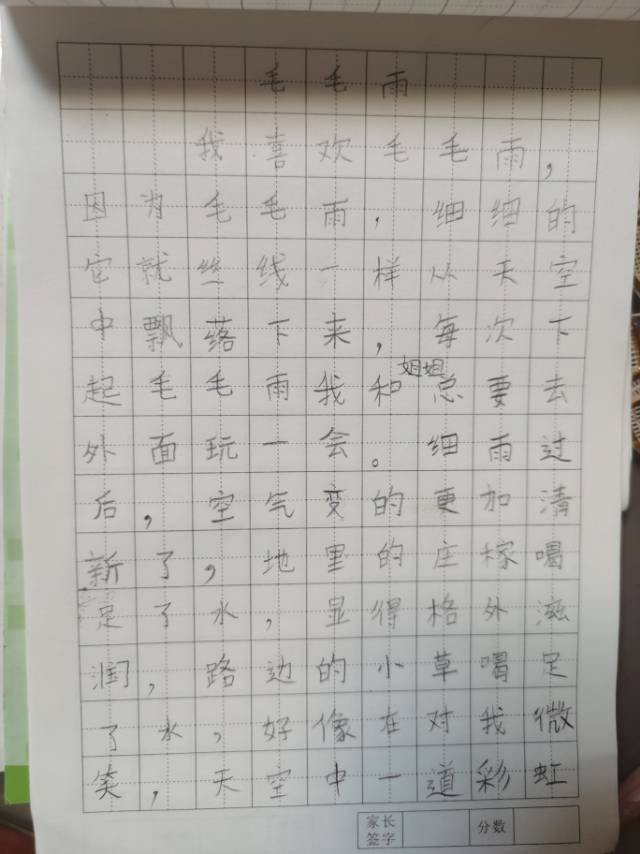 毛毛雨
我喜欢毛毛雨，
因为毛毛雨，细细的
它就丝线一样从天空
中飘落下来，每次下
起毛毛雨我和姐姐总要去
外面玩一会。细雨过
后，空气变的更加清
新了，地里的庄稼喝
足了水，显得格外滋
润，路边的小草喝足
了水，好像在对我微
笑，天空中一道彩虹
家长签字 分数